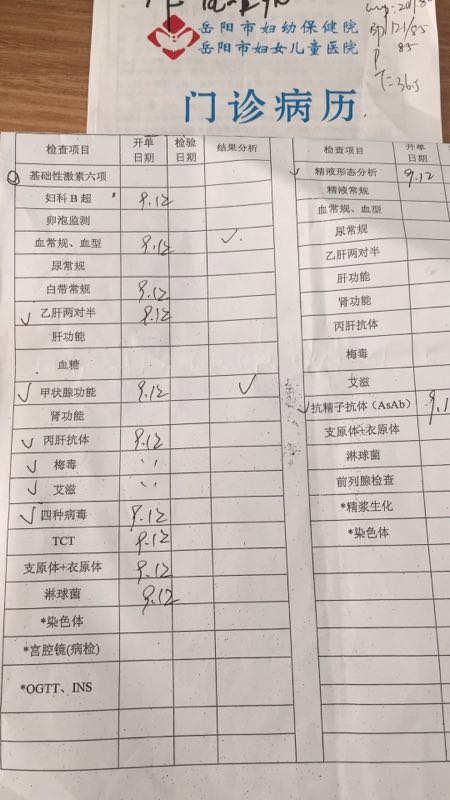 岳阳市妇幼保健院
岳阳市妇女儿童医院
BP 121/85
P 85
T=36.5
门诊病历
检查项目 开单日期 检验日期 结果分析
基础性激素六项
妇科B超 9.12
卵泡监测
血常规、血型 9.12 ✓
尿常规
白带常规 9.12
✓ 乙肝两对半 9.12
肝功能
血糖
✓ 甲状腺功能 9.12 ✓
肾功能
✓ 丙肝抗体 9.12
✓ 梅毒 ，，
✓ 艾滋 ，，
✓ 四种病毒 9.12
TCT 9.12
支原体+衣原体 9.12
淋球菌 9.12
*染色体
*宫腔镜(病检)
*OGTT、INS
检查项目 开单日期
✓ 精液形态分析 9.12
精液常规
血常规、血型
尿常规
乙肝两对半
肝功能
肾功能
丙肝抗体
梅毒
艾滋
✓ 抗精子抗体（AsAb） 9.1
支原体+衣原体
淋球菌
前列腺检查
*精浆生化
*染色体